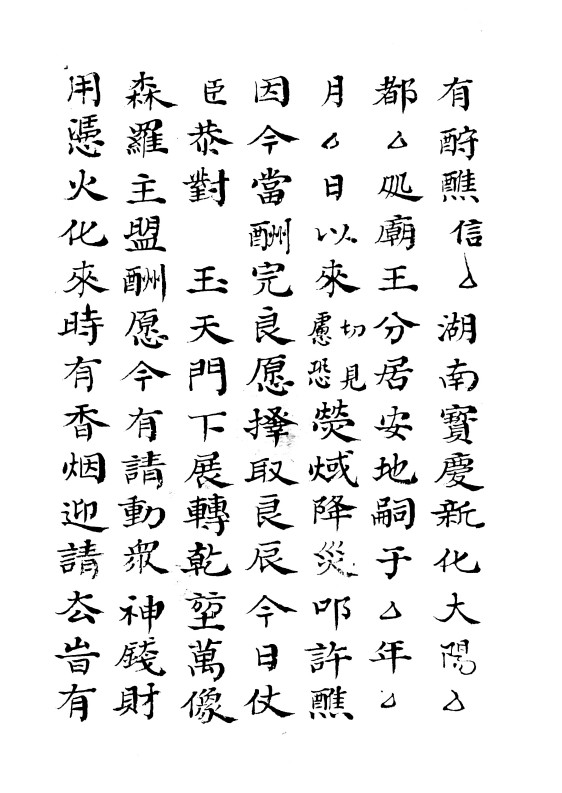 有酧醮信厶湖南寳慶新化大陽厶
都厶処廟王分居安地嗣于厶年厶
月厶日以來切見慮恐熒惑降災叩許醮
因今當酬完良愿擇取良辰今日仗
臣恭對玉天門下展轉乾堃萬像
森羅主盟酬愿今有請動眾神錢財
用憑火化來時有香烟迎請厺旹有